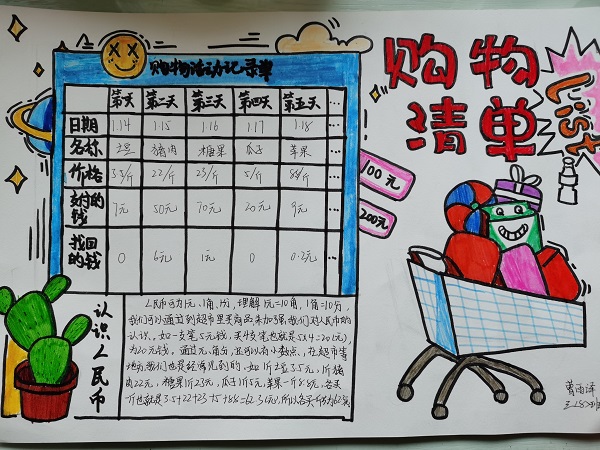 购物活动记录单
第一天 第二天 第三天 第四天 第五天 …
日期 1.14 1.15 1.16 1.17 1.18 …
名称 土豆 猪肉 糖果 瓜子 苹果 …
价格 3.5/斤 22/斤 23/斤 5/斤 8.8/斤 …
支付的钱 7元 50元 70元 20元 9元 …
找回的钱 0 6元 1元 0 0.2元 …
认识人民币
人民币可为1元、1角、1分,理解1元=10角,1角=10分,
我们可以通过到超市里买商品来加强我们对人民币的
认识。如一支笔5元钱,买4支笔也就是5×4=20(元)
为20元钱。通过元、角、分,且可以有小数点、在超市等
地方我们也是经常见到的,如1斤土豆3.5元,1斤猪
肉22元,糖果1斤23元,瓜子1斤5元,苹果一斤8.8元,各买
一斤也就是3.5+22+23+5+8.8=62.3(元),所以各买一斤为62.3元
购物
清单
List
100元
200元